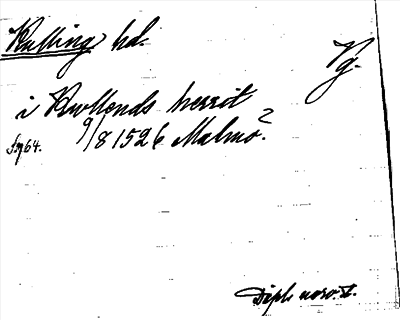 Kulling hd. Vg.
i Kullends herrit
9/8 1526 Malmö?
s. 964.
Dipl. norv. V.